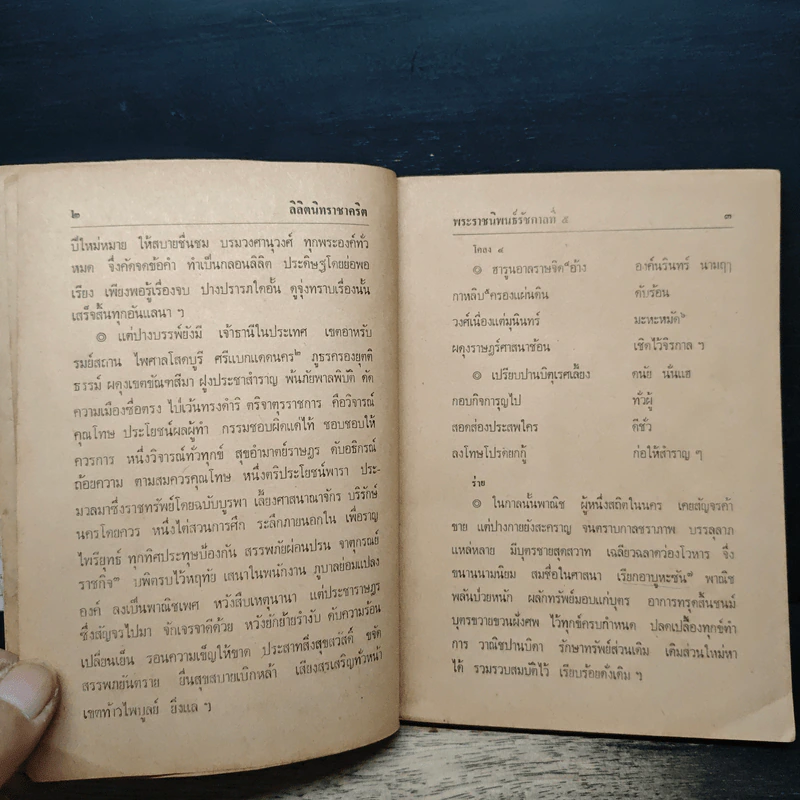 ๒ ลิลิตนิทราชาคริต
ปีใหม่หมาย ให้สบายชื่นชม บรมวงศานุวงศ์ ทุกพระองค์ทั่ว
หมด จึงคัดจดข้อคำ ทำเป็นกลอนลิลิต ประดิษฐโดยย่อพอ
เรียง เพียงพอรู้เรื่องจบ ปางปรารภใดอั้น ดูจุ่งทราบเรื่องนั้น
เสร็จสิ้นทุกอันแลนา ฯ
๏ แต่ปางบรรพ์ยังมี เจ้าธานีในประเทศ เขตอาหรับ
รมย์สถาน ไพศาลโสดบูรี ศรีแบกแดดนคร๒ ภูธรครองยุตติ
ธรรม์ ผดุงเขตขัณฑสีมา ฝูงประชาสำราญ พ้นภัยพาลพิบัติ ดัด
ความเมืองซื่อตรง ไป่เว้นทรงดำริ ตริจาตุรราชการ คือวิจารณ์
คุณโทษ ประโยชน์ผลผู้ทำ กรรมชอบผิดแด่ไท้ ชอบชอบให้
ควรการ หนึ่งวิจารณ์ทั่วทุกข์ สุขอำมาตย์ราษฎร ดับอธิกรณ์
ถ้อยความ ตามสมควรคุณโทษ หนึ่งตริประโยชน์พารา ประ-
มวลมาซึ่งราชทรัพย์โดยฉบับบูรพา เลี้ยงศาสนาณาจักร บริรักษ์
นครโดยควร หนึ่งไต่สวนการศึก ระลึกภายนอกใน เพื่อราญ
ไพรียุทธ์ ทุกทิศประทุษป้องกัน สรรพภัยผ่อนปรน จาตุกรณย์
ราชกิจ๓ บพิตรบไว้หฤทัย เสนาในพนักงาน ภูบาลย่อมแปลง
องค์ ลงเป็นพาณิชเพศ หวังสืบเหตุนานา แต่ประชาราษฎร
ซึ่งสัญจรไปมา จักเจรจาคดีด้วย หวังยักย้ายรำงับ ดับความร้อน
เปลี่ยนเย็น รอนความเข็ญให้ขาด ประสาทสิ่งสุขสวัสดิ์ ขจัด
สรรพภยันตราย ยืนสุขสบายเบิกหล้า เสียงสรเสริญทั่วหน้า
เขตท้าวไพบูลย์ ยิ่งแล ฯ
พระราชนิพนธ์รัชกาลที่ ๕ ๓
โคลง ๔
๏ ฮารูนอาลราษจิด๔อ้าง องค์นรินทร์ นามฤๅ
กาหลิบ๕ครองแผ่นดิน ดับร้อน
วงศ์เนื่องแต่มุนินทร์ มะหะหมัด๖
ผดุงราษฎร์ศาสนาซ้อน เชิดไว้จิรกาล ฯ
๏ เปรียบปานบิตุเรศเลี้ยง ดนัย นั้นแฮ
กอบกิจการุญไป ทั่วผู้
สอดส่องประสพใคร ดีชั่ว
ลงโทษโปรดยกกู้ ก่อให้สำราญ ฯ
ร่าย
๏ ในกาลนั้นพาณิช ผู้หนึ่งสถิตในนคร เคยสัญจรค้า
ขาย แต่ปางกายยังสะคราญ จนตราบกาลชราภาพ บรรลุลาภ
แหล่หลาย มีบุตรชายสุดสวาท เฉลียวฉลาดว่องโวหาร จึ่ง
ขนานนามนิยม สมชื่อในศาสนา เรียกอาบูหะซัน๗ พาณิช
พลันป่วยหนัก ผลักทรัพย์มอบแก่บุตร อาการทรุดสิ้นชนม์
บุตรขวายขวนฝังศพ ไว้ทุกข์ครบกำหนด ปลดเปลื้องทุกข์ทำ
การ วาณิชปานบิดา รักษาทรัพย์ส่วนเดิม เติมส่วนใหม่หา
ได้ รวมรวบสมบัติไว้ เรียบร้อยดั่งเดิม ฯ